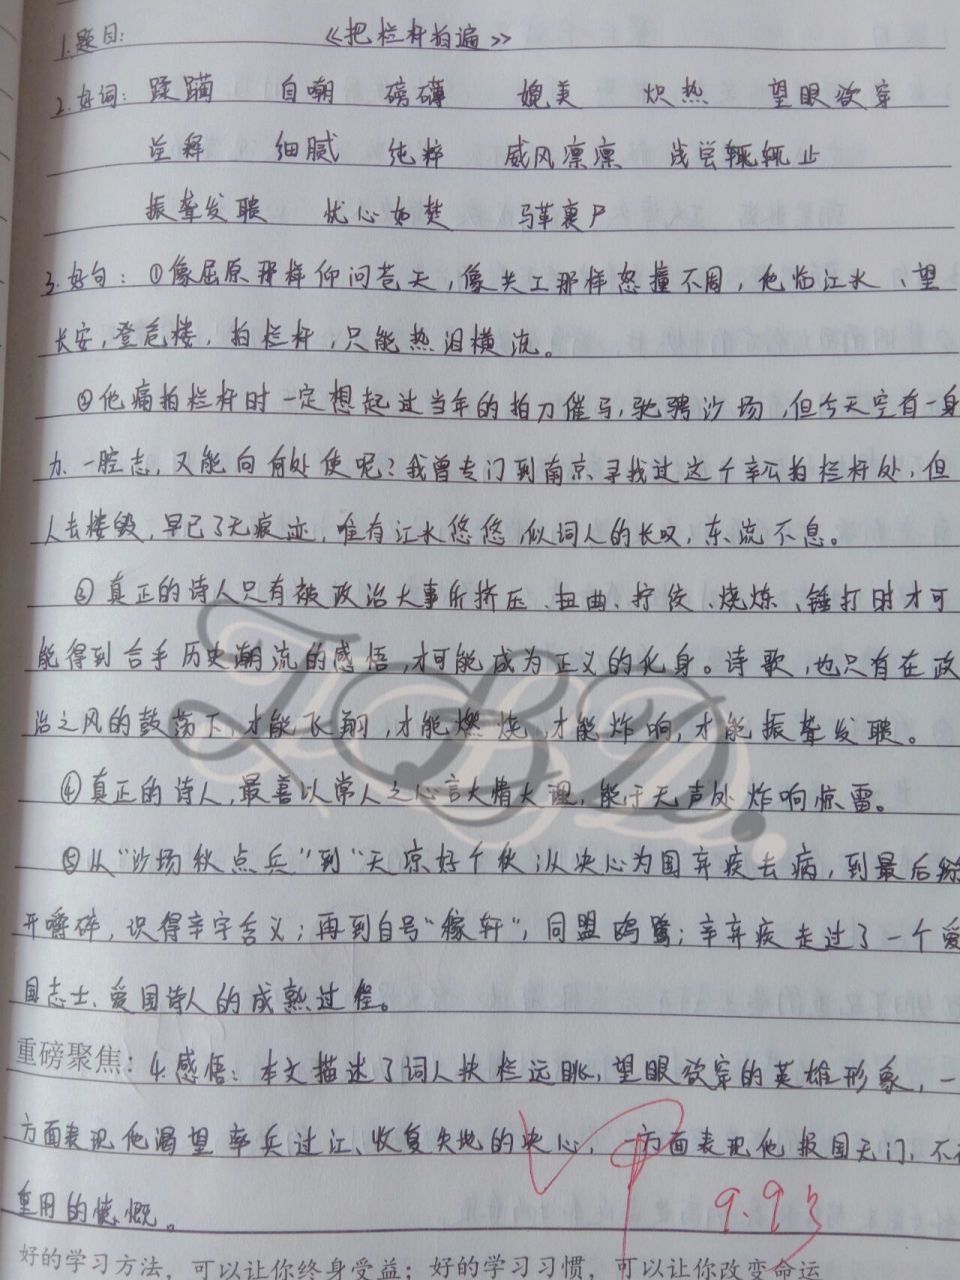 1.题目: 《把栏杆拍遍》
2.好词: 蹂躏 自嘲 磅礴 媲美 炽热 望眼欲穿
诠释 细腻 纯粹 威风凛凛 浅尝辄辄止
振聋发聩 忧心如焚 马革裹尸
3.好句：①像屈原那样仰问苍天,像共工那样怒撞不周,他临江水、望
长安,登危楼,拍栏杆,只能热泪横流。
②他痛拍栏杆时一定想起过当年的拍刀催马,驰骋沙场,但今天空有一身
力、一腔志,又能向何处使呢?我曾专门到南京寻找过这个辛公拍栏杆处,但
人去楼毁,早已了无痕迹,唯有江水悠悠,似词人的长叹,东流不息。
③真正的诗人只有被政治大事所挤压、扭曲、拧绞、烧炼、锤打时才可
能得到合乎历史潮流的感悟,才可能成为正义的化身。诗歌,也只有在政
治之风的鼓荡下,才能飞翔,才能燃烧,才能炸响,才能振聋发聩。
④真正的诗人,最善以常人之心言大情大理,能于无声处炸响惊雷。
⑤从“沙场秋点兵”到“天凉好个秋;从决心为国弃疾去病,到最后掰
开嚼碎,识得辛字含义;再到自号“稼轩”,同盟鸥鹭;辛弃疾走过了一个爱
国志士、爱国诗人的成熟过程。
重磅聚焦：4.感悟：本文描述了词人扶栏远眺,望眼欲穿的英雄形象,一
方面表现他渴望率兵过江、收复失地的决心,一方面表现他报国无门,不被
重用的愤慨。
9.93
好的学习方法，可以让你终身受益；好的学习习惯，可以让你改变命运
TBD.